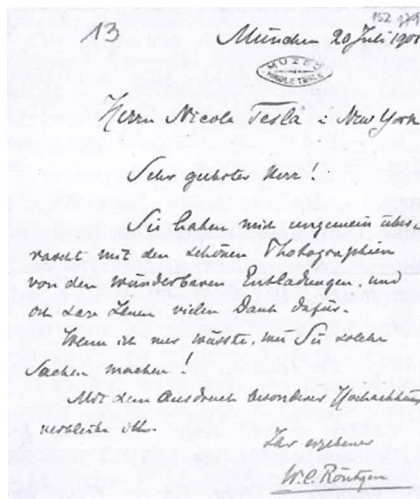 152
13
München 20 Juli 1901
MUZEJ
NIKOLE TESLE
Herrn Nicola Tesla i New York
Sehr geehrter Herr!
Sie haben mich ungemein über-
rascht mit den schönen Photographien
von den wunderbaren Entladungen, und
ich sage Ihnen vielen Dank dafür.
Wenn ich nur wüsste, wie Sie solche
Sachen machen!
Mit dem Ausdruck besonderer Hochachtung
verbleibe ich
Ihr ergebener
W. C. Röntgen